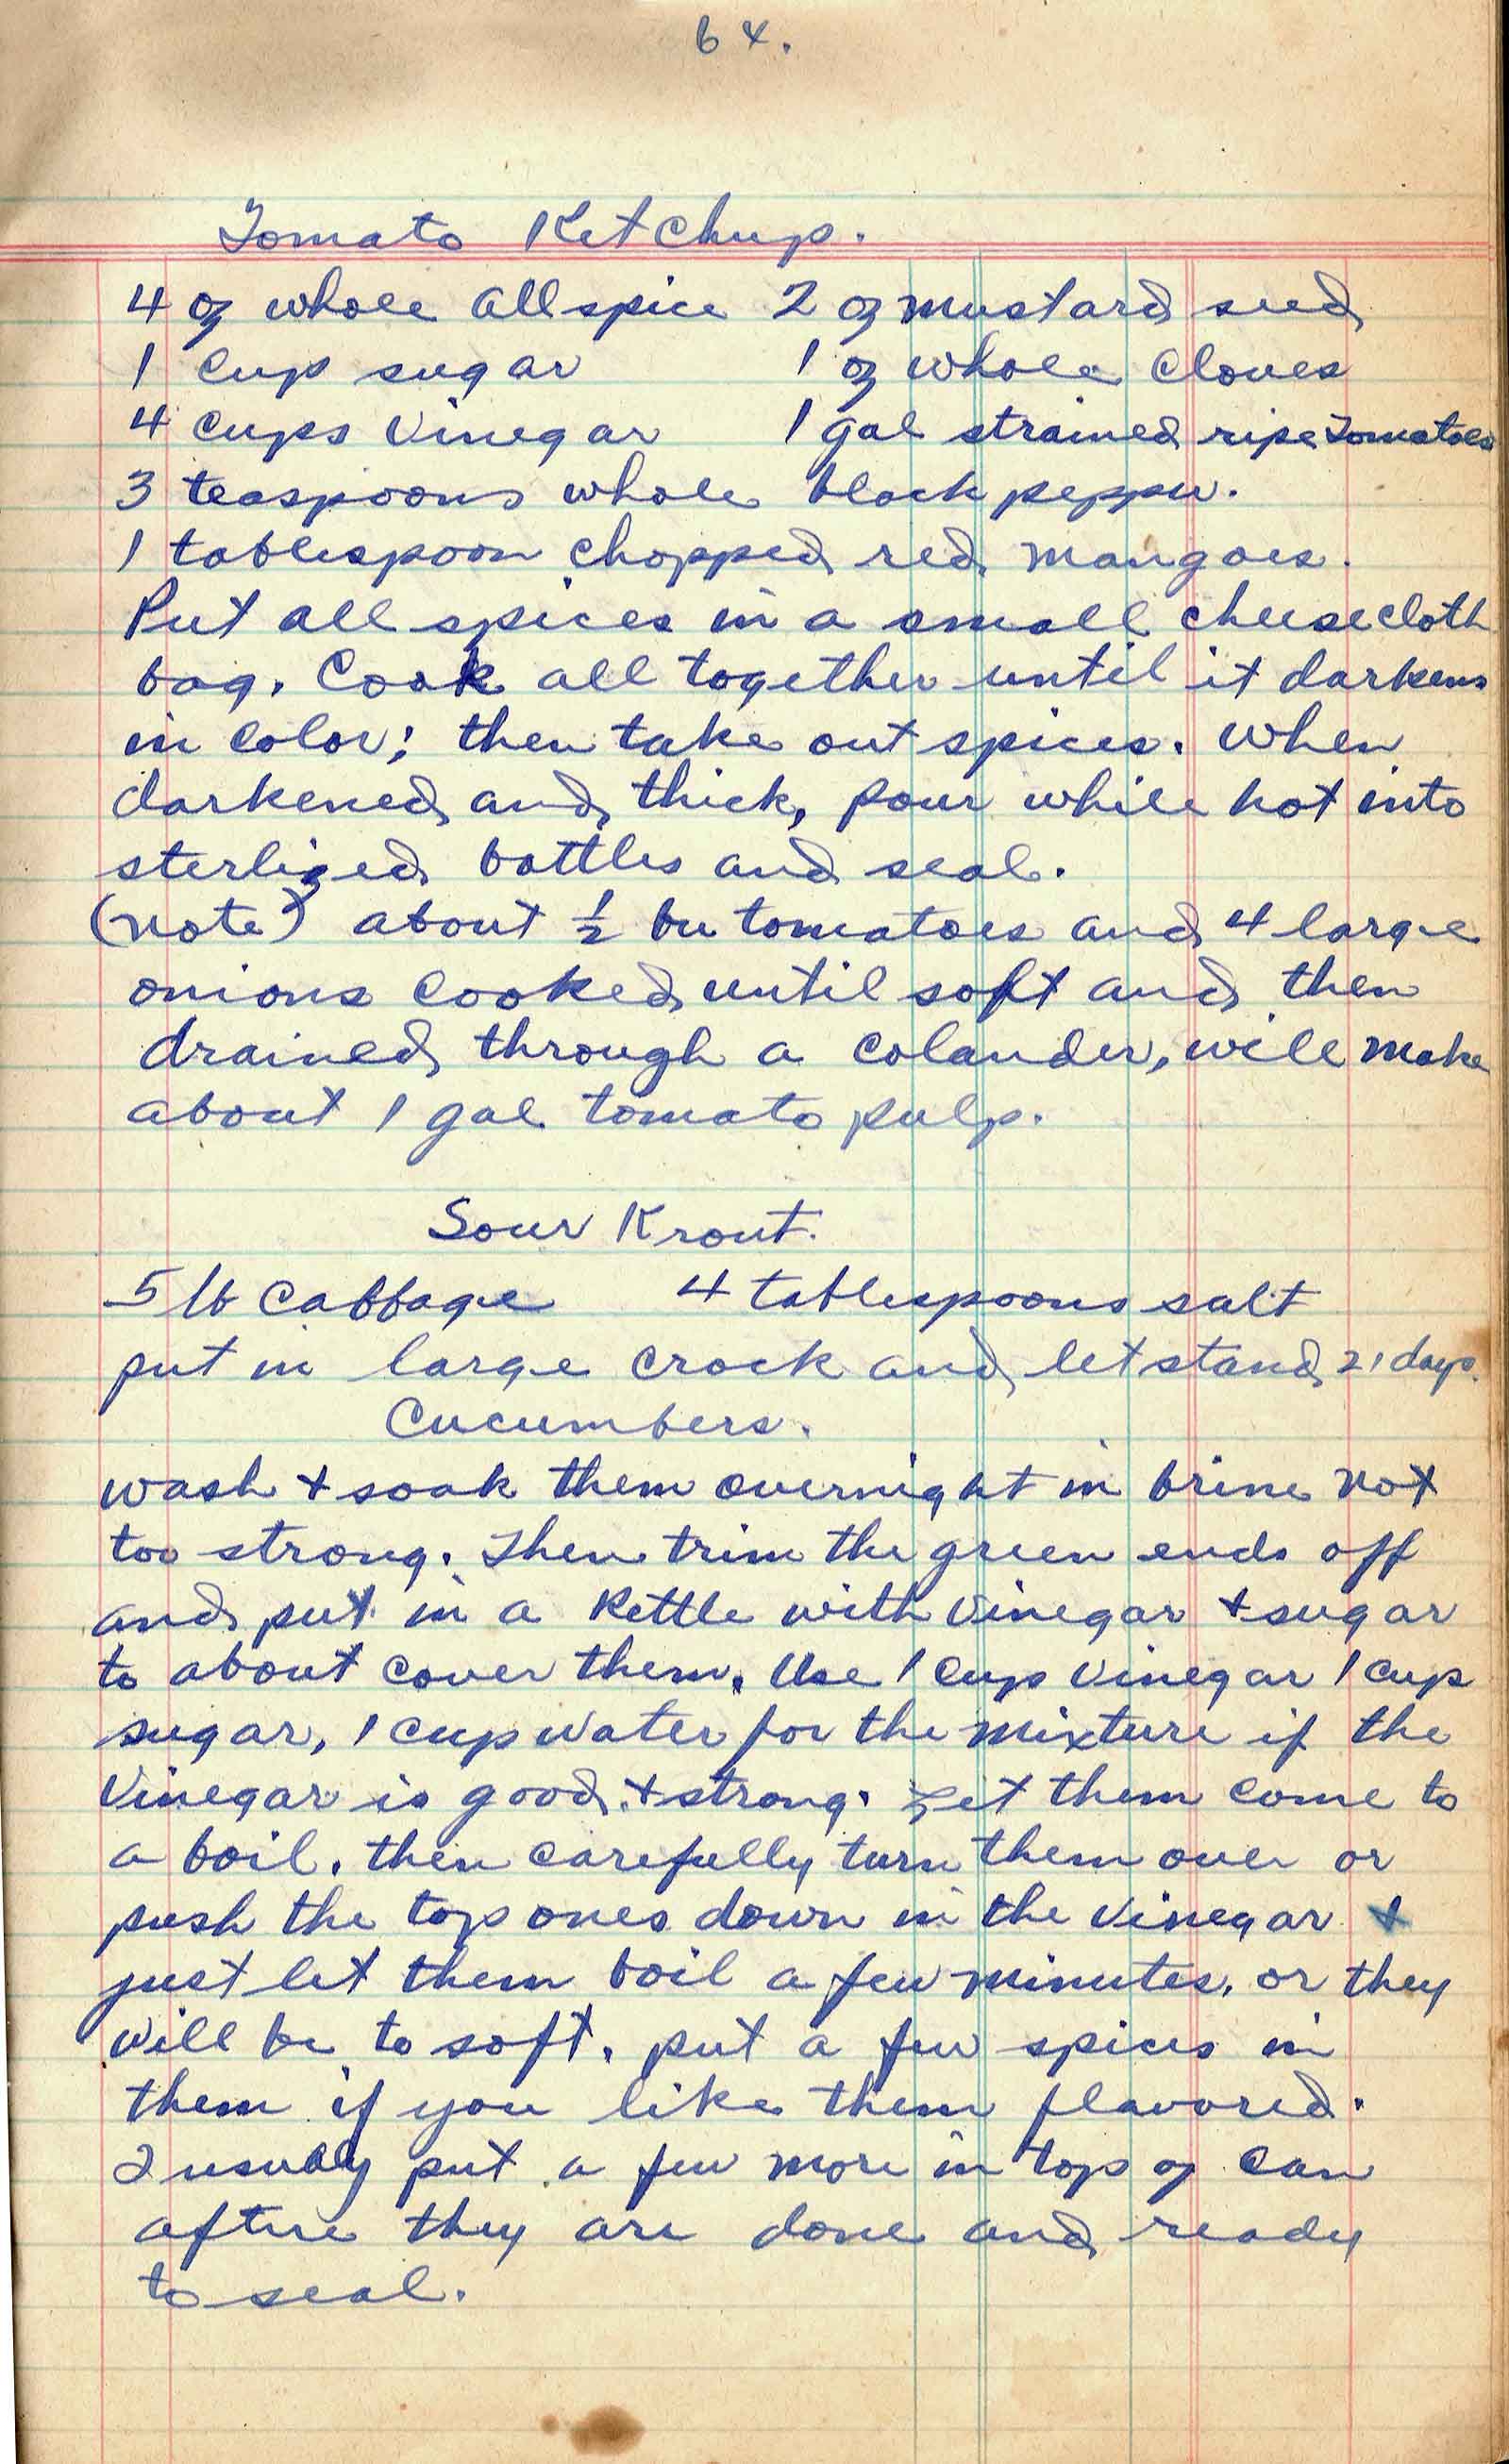 64.
Tomato Ketchup.
4 oz whole allspice 2 oz mustard seed
1 cup sugar 1 oz whole cloves
4 cups vinegar 1 gal strained ripe tomatoes
3 teaspoons whole black pepper.
1 tablespoon chopped red mangoes.
Put all spices in a small cheesecloth
bag. Cook all together until it darkens
in color; then take out spices. When
darkened and thick, pour while hot into
sterlized bottles and seal.
(note) about ½ bu tomatoes and 4 large
onions cooked until soft and then
drained through a colander, will make
about 1 gal tomato pulp.
Sour Krout.
5 lb cabbage 4 tablespoons salt
put in large crock and let stand 21 days.
Cucumbers.
wash + soak them overnight in brine not
too strong. Then trim the green ends off
and put in a kettle with vinegar + sugar
to about cover them. Use 1 cup vinegar 1 cup
sugar, 1 cup water for the mixture if the
vinegar is good + strong. Let them come to
a boil. then carefully turn them over or
push the top ones down in the vinegar +
just let them boil a few minutes. or they
will be to soft. put a few spices in
them if you like them flavored.
I usually put a few more in top of can
after they are done and ready
to seal.